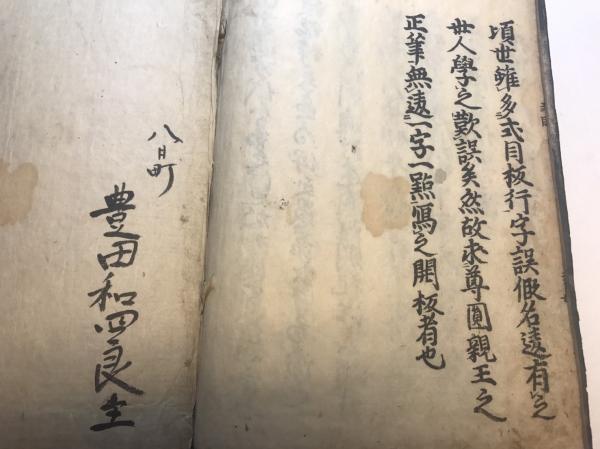 頃世雖多式目板行字誤假名遠有之
世人學之歎誤矣然故求尊圓親王之
正筆無遠一字一點寫之開板者也
八日町
豊田和四良主